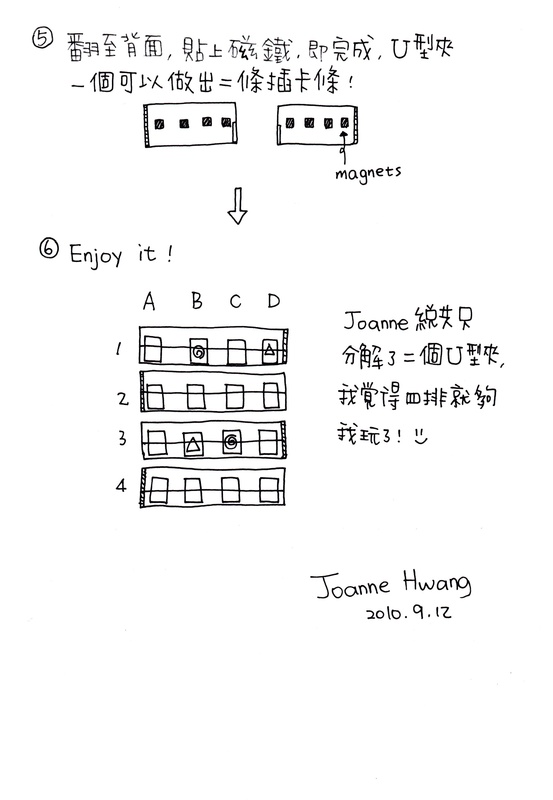 ⑤ 翻至背面, 貼上磁鐵, 即完成, U型夾
一個可以做出二條插卡條!
magnets
⑥ Enjoy it!
A B C D
1
2
3
4
Joanne 總共只
分解了二個U型夾,
我覺得四排就夠
我玩了! :)
Joanne Hwang
2010.9.12